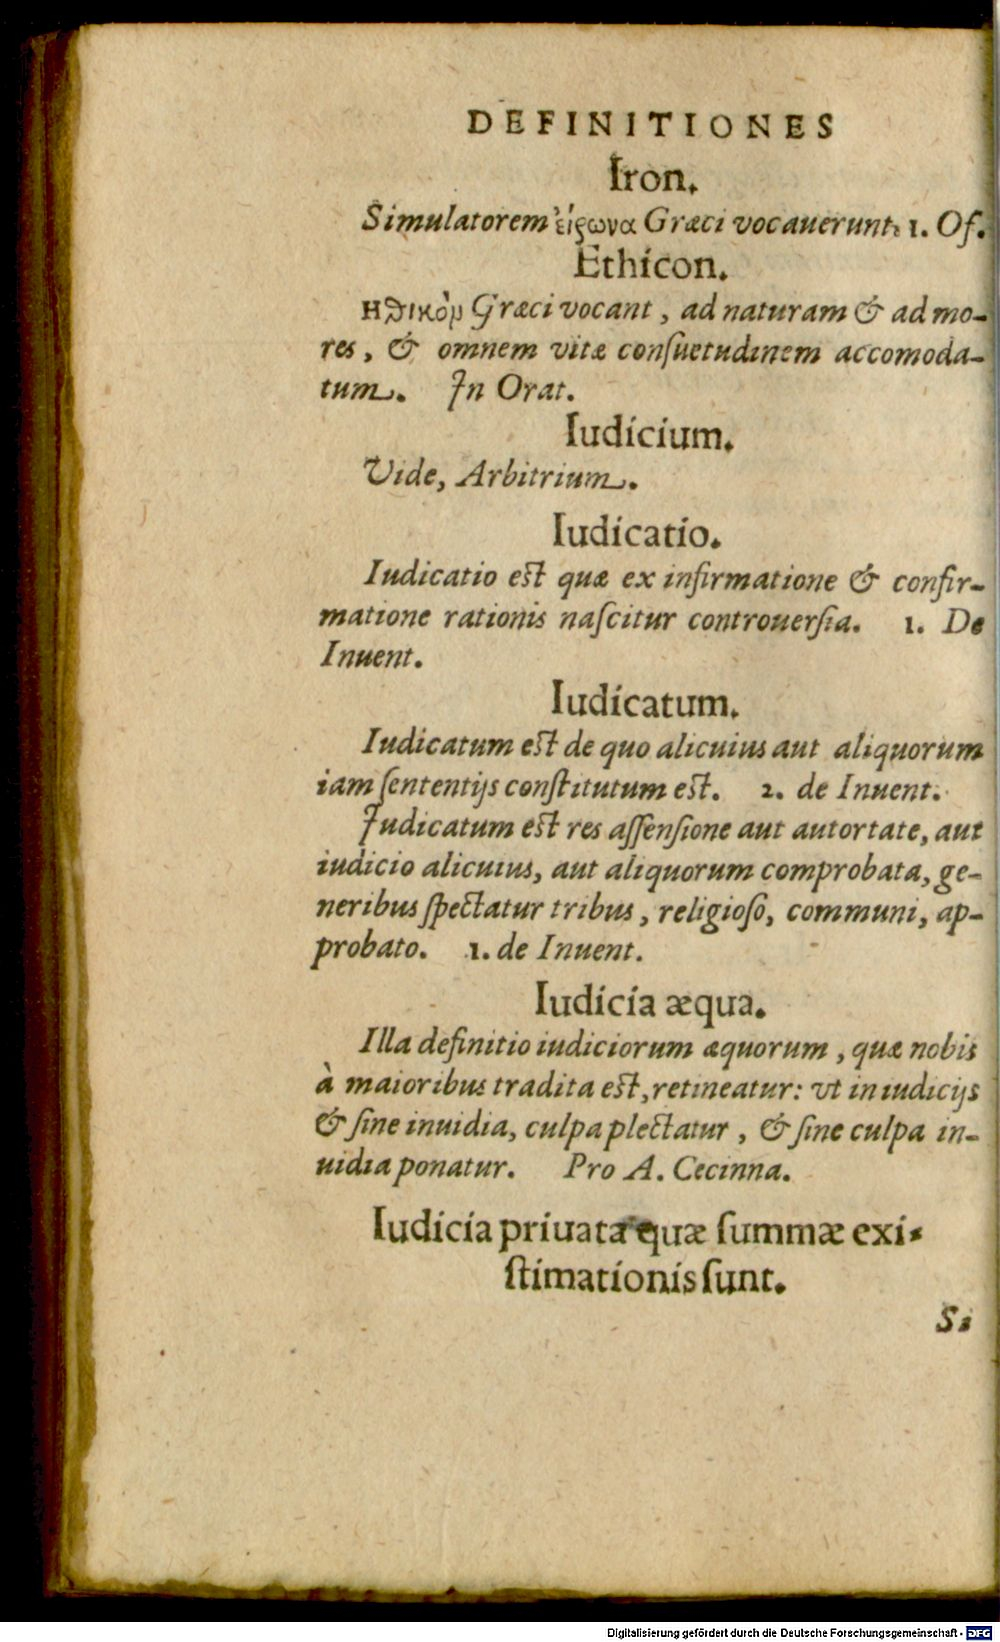 DEFINITIONES
Iron.
Simulatorem εἴρωνα Græci vocauerunt. 1. Of.
Ethicon.
Ηϑικὸν Græci vocant, ad naturam & ad mo-
res, & omnem vitæ conſuetudinem accomoda-
tum. In Orat.
Iudicium.
Vide, Arbitrium.
Iudicatio.
Iudicatio est quæ ex infirmatione & confir-
matione rationis naſcitur controuerſia. 1. De
Inuent.
Iudicatum.
Iudicatum est de quo alicuius aut aliquorum
iam ſententijs conſtitutum eſt. 2. de Inuent.
Iudicatum est res aſſenſione aut autortate, aut
iudicio alicuius, aut aliquorum comprobata, ge-
neribus ſpectatur tribus, religioſo, communi, ap-
probato. 1. de Inuent.
Iudicia æqua.
Illa definitio iudiciorum æquorum, quæ nobis
à maioribus tradita est, retineatur: vt in iudicijs
& ſine inuidia, culpa plectatur, & ſine culpa in-
uidia ponatur. Pro A. Cecinna.
Iudicia priuata quæ ſummæ exi-
ſtimationis ſunt.
Si
Digitalisierung gefördert durch die Deutsche Forschungsgemeinschaft - DFG